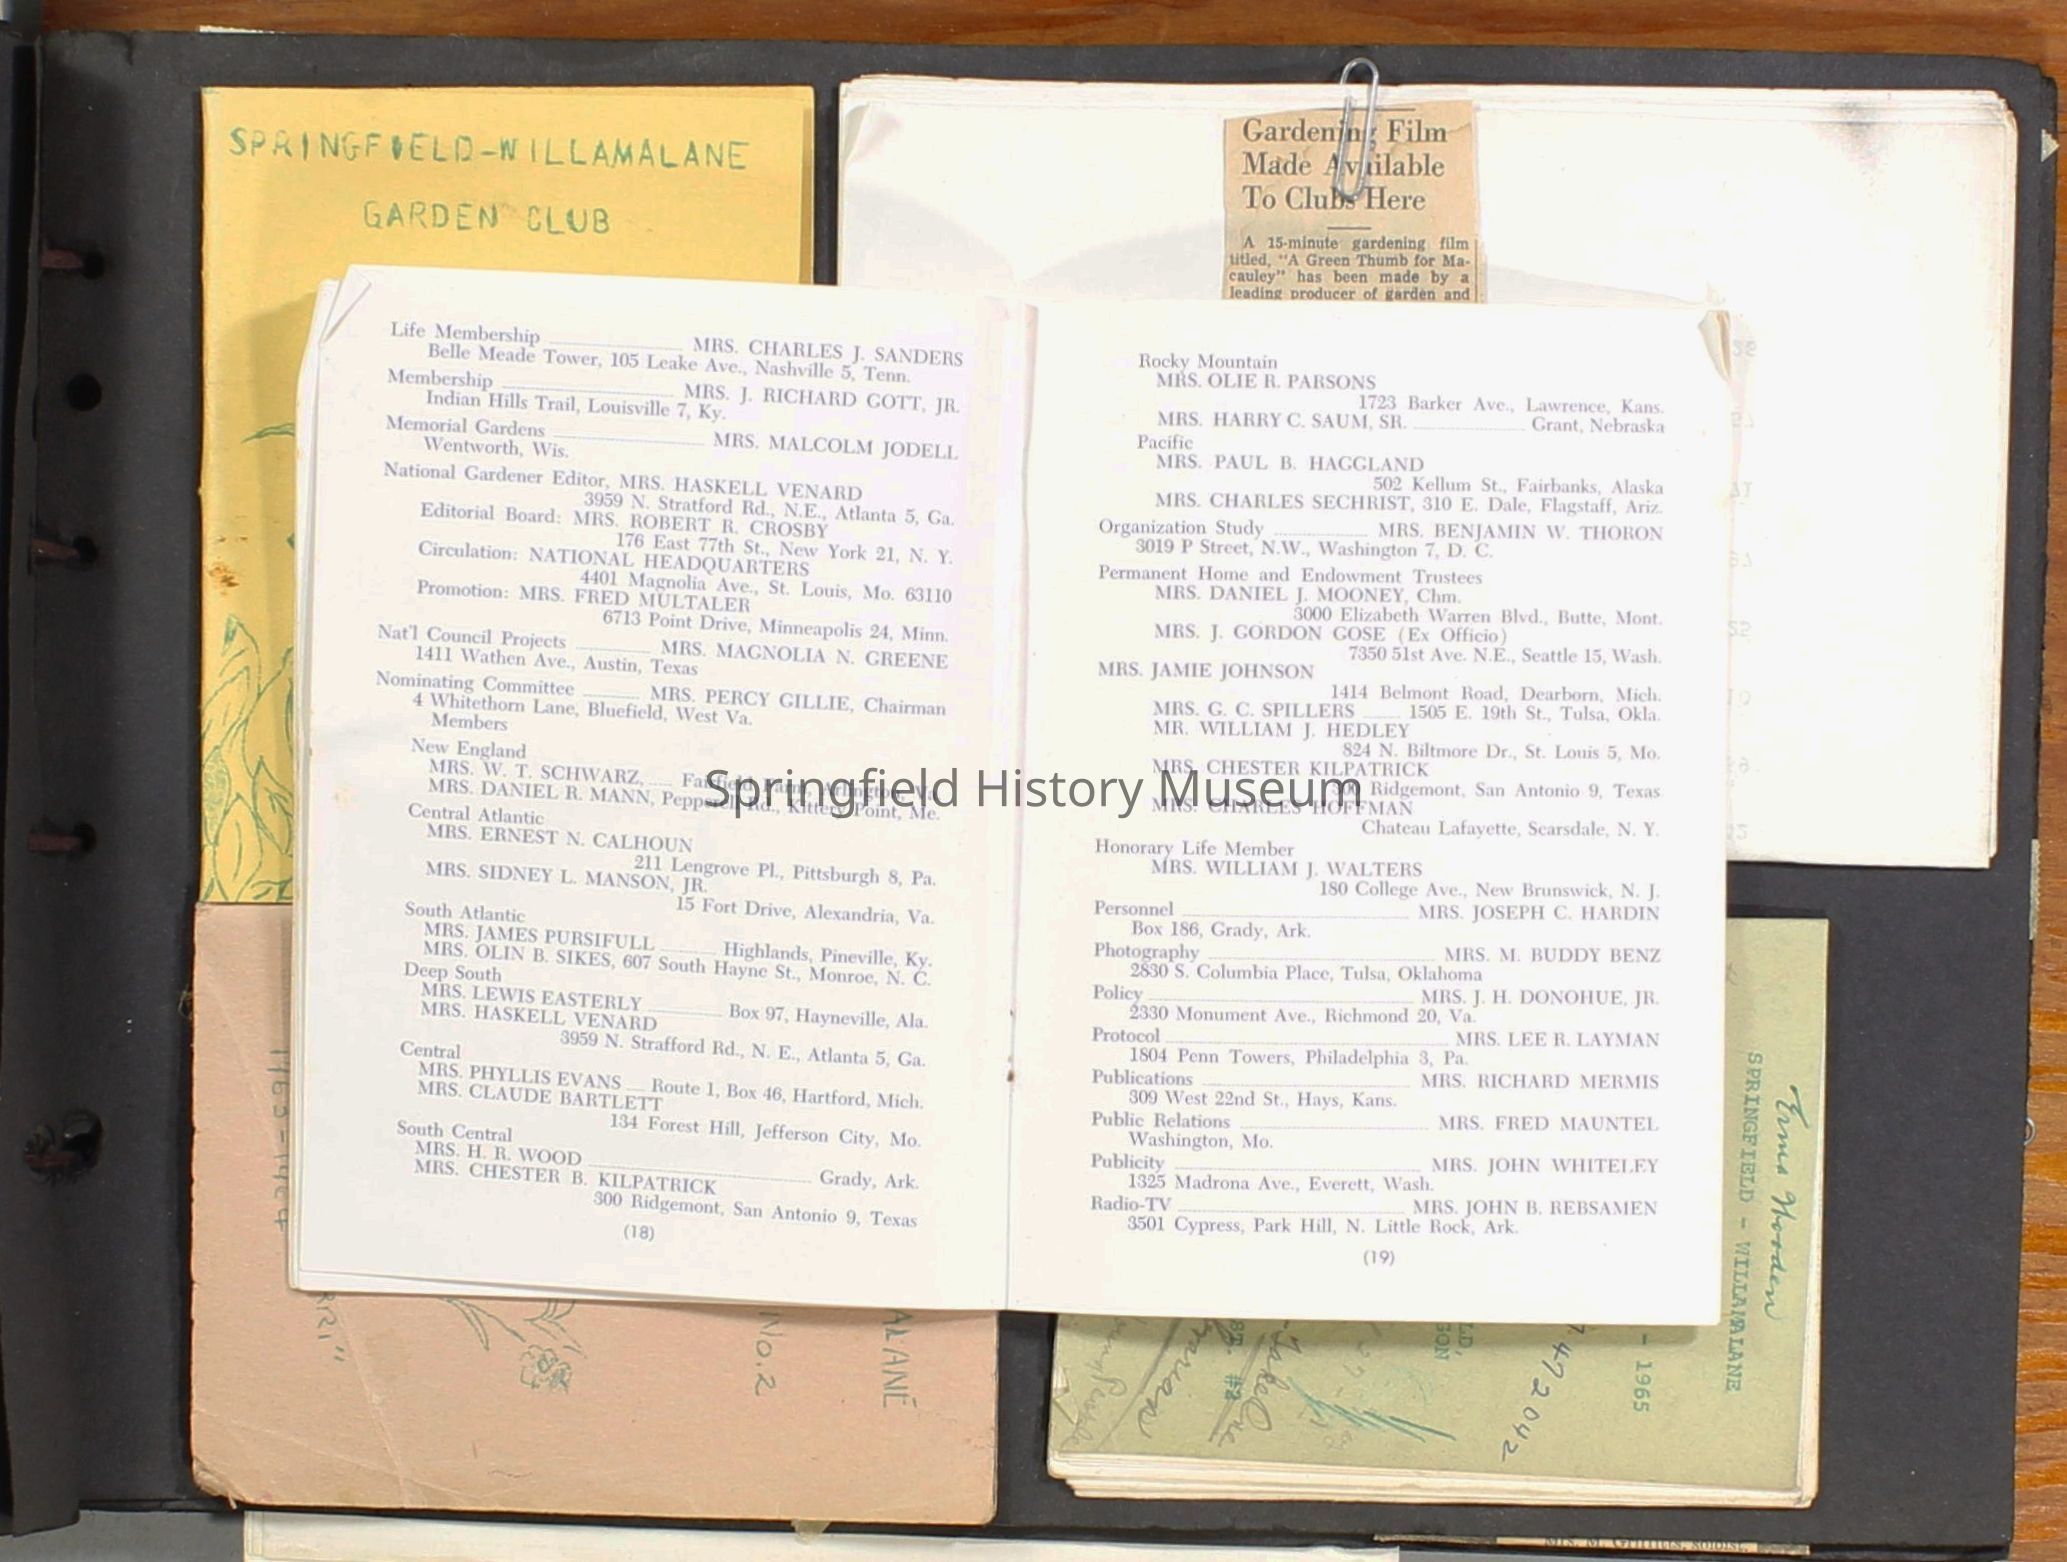 SPRINGFIELD-WILLAMALANE
GARDEN CLUB
Gardening Film
Made Available
To Clubs Here
A 15-minute gardening film
titled, "A Green Thumb for Ma-
cauley" has been made by a
leading producer of garden and
Life Membership MRS. CHARLES J. SANDERS
Belle Meade Tower, 105 Leake Ave., Nashville 5, Tenn.
Membership MRS. J. RICHARD GOTT, JR.
Indian Hills Trail, Louisville 7, Ky.
Memorial Gardens MRS. MALCOLM JODELL
Wentworth, Wis.
National Gardener Editor, MRS. HASKELL VENARD
3959 N. Stratford Rd., N.E., Atlanta 5, Ga.
Editorial Board: MRS. ROBERT R. CROSBY
176 East 77th St., New York 21, N. Y.
Circulation: NATIONAL HEADQUARTERS
4401 Magnolia Ave., St. Louis, Mo. 63110
Promotion: MRS. FRED MULTALER
6713 Point Drive, Minneapolis 24, Minn.
Nat'l Council Projects MRS. MAGNOLIA N. GREENE
1411 Wathen Ave., Austin, Texas
Nominating Committee MRS. PERCY GILLIE, Chairman
4 Whitethorn Lane, Bluefield, West Va.
Members
New England
MRS. W. T. SCHWARZ, Fairfield Farm, Arlington, Va.
MRS. DANIEL R. MANN, Pepperell Rd., Kittery Point, Me.
Central Atlantic
MRS. ERNEST N. CALHOUN
211 Lengrove Pl., Pittsburgh 8, Pa.
MRS. SIDNEY L. MANSON, JR.
15 Fort Drive, Alexandria, Va.
South Atlantic
MRS. JAMES PURSIFULL Highlands, Pineville, Ky.
MRS. OLIN B. SIKES, 607 South Hayne St., Monroe, N. C.
Deep South
MRS. LEWIS EASTERLY Box 97, Hayneville, Ala.
MRS. HASKELL VENARD
3959 N. Strafford Rd., N. E., Atlanta 5, Ga.
Central
MRS. PHYLLIS EVANS Route 1, Box 46, Hartford, Mich.
MRS. CLAUDE BARTLETT
134 Forest Hill, Jefferson City, Mo.
South Central
MRS. H. R. WOOD Grady, Ark.
MRS. CHESTER B. KILPATRICK
300 Ridgemont, San Antonio 9, Texas
(18)
Rocky Mountain
MRS. OLIE R. PARSONS
1723 Barker Ave., Lawrence, Kans.
MRS. HARRY C. SAUM, SR. Grant, Nebraska
Pacific
MRS. PAUL B. HAGGLAND
502 Kellum St., Fairbanks, Alaska
MRS. CHARLES SECHRIST, 310 E. Dale, Flagstaff, Ariz.
Organization Study MRS. BENJAMIN W. THORON
3019 P Street, N.W., Washington 7, D. C.
Permanent Home and Endowment Trustees
MRS. DANIEL J. MOONEY, Chm.
3000 Elizabeth Warren Blvd., Butte, Mont.
MRS. J. GORDON GOSE (Ex Officio)
7350 51st Ave. N.E., Seattle 15, Wash.
MRS. JAMIE JOHNSON
1414 Belmont Road, Dearborn, Mich.
MRS. G. C. SPILLERS 1505 E. 19th St., Tulsa, Okla.
MR. WILLIAM J. HEDLEY
824 N. Biltmore Dr., St. Louis 5, Mo.
MRS. CHESTER KILPATRICK
300 Ridgemont, San Antonio 9, Texas
MRS. CHARLES HOFFMAN
Chateau Lafayette, Scarsdale, N. Y.
Honorary Life Member
MRS. WILLIAM J. WALTERS
180 College Ave., New Brunswick, N. J.
Personnel MRS. JOSEPH C. HARDIN
Box 186, Grady, Ark.
Photography MRS. M. BUDDY BENZ
2830 S. Columbia Place, Tulsa, Oklahoma
Policy MRS. J. H. DONOHUE, JR.
2330 Monument Ave., Richmond 20, Va.
Protocol MRS. LEE R. LAYMAN
1804 Penn Towers, Philadelphia 3, Pa.
Publications MRS. RICHARD MERMIS
309 West 22nd St., Hays, Kans.
Public Relations MRS. FRED MAUNTEL
Washington, Mo.
Publicity MRS. JOHN WHITELEY
1325 Madrona Ave., Everett, Wash.
Radio-TV MRS. JOHN B. REBSAMEN
3501 Cypress, Park Hill, N. Little Rock, Ark.
(19)
Springfield History Museum
1963-1964
No. 2
ALANE
Erma Wooden
SPRINGFIELD - WILLAMALANE
- 1965
7472042
#2
Mrs. M. Griffitts, soloist,